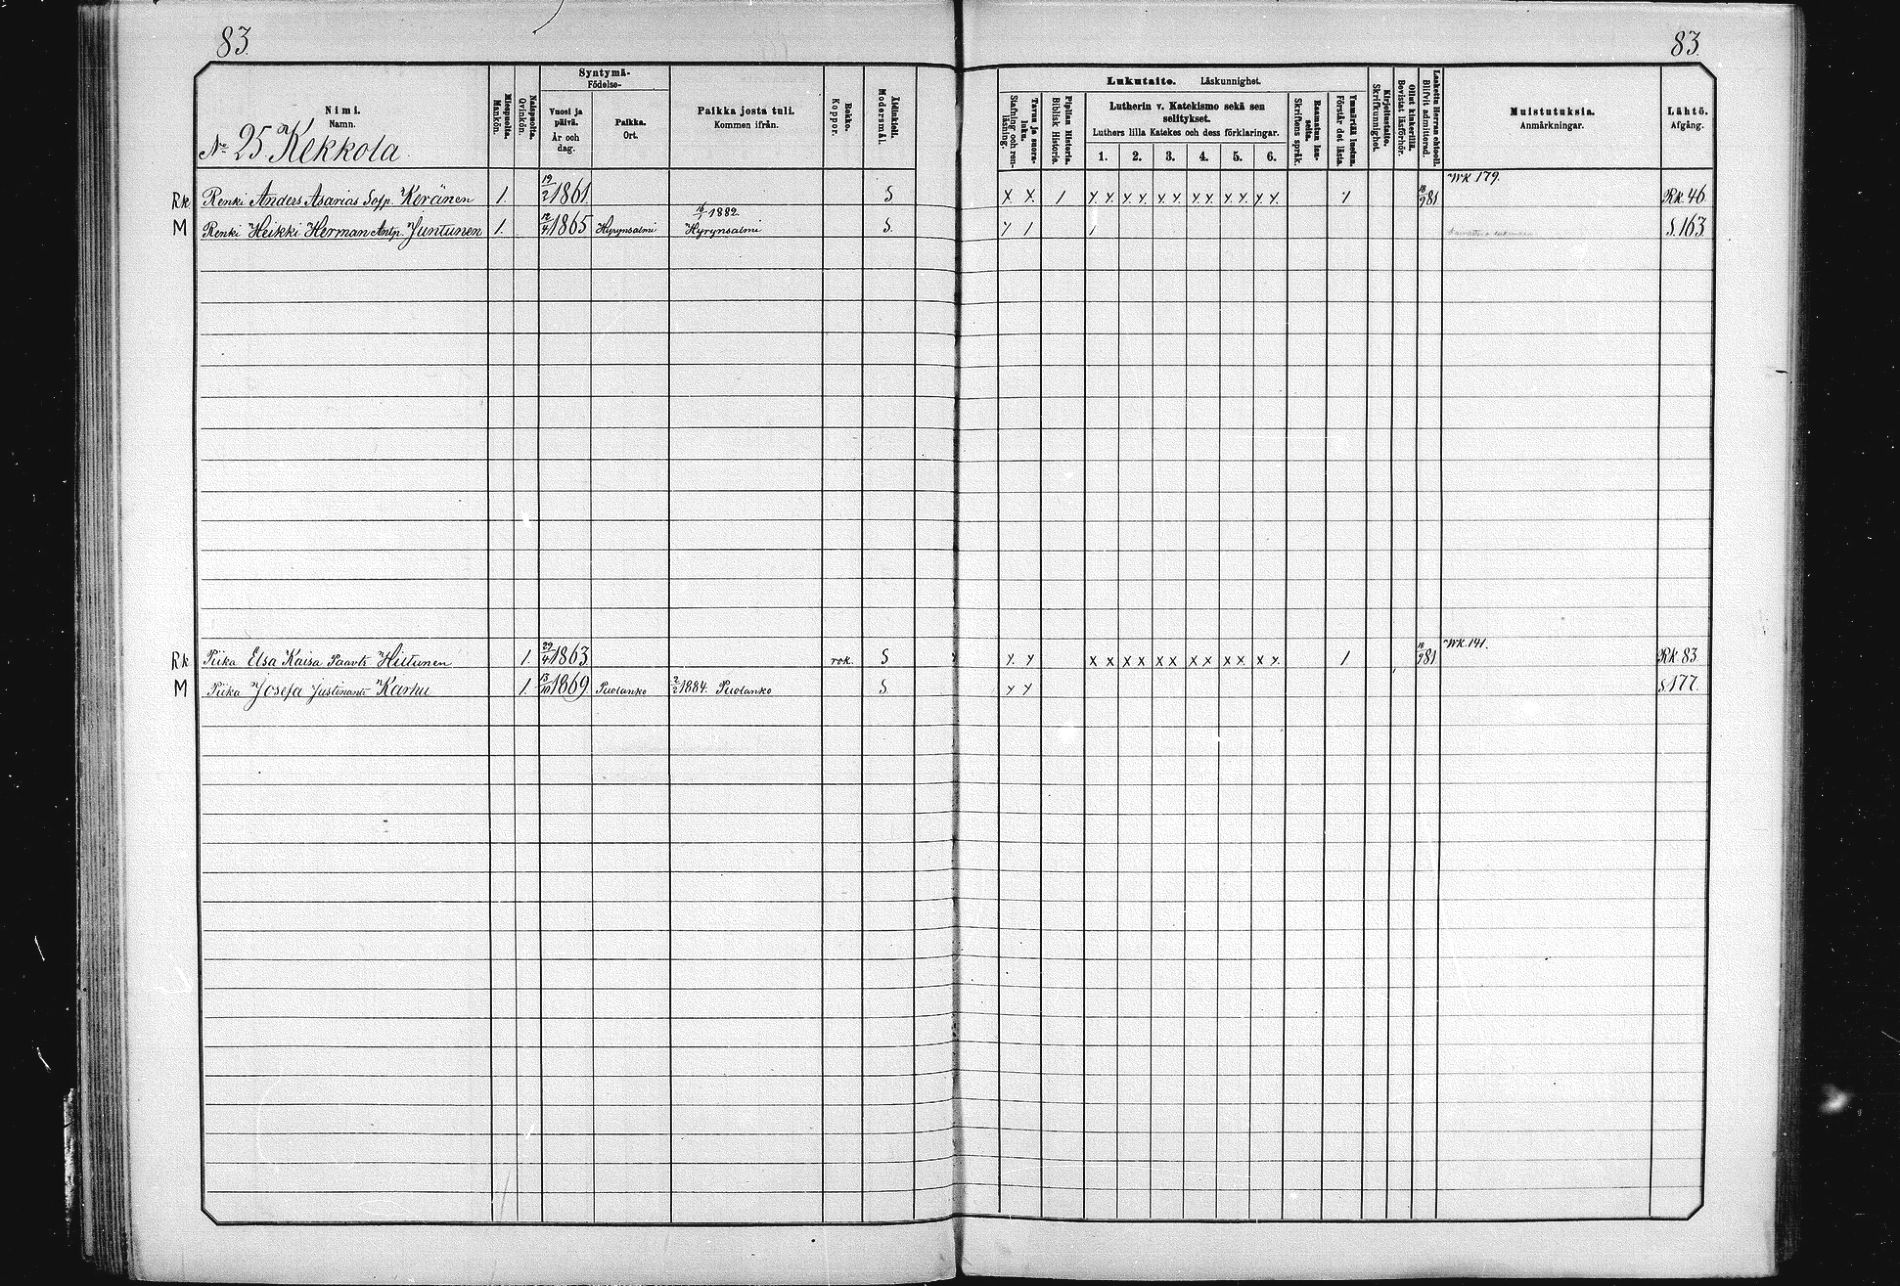 83.
83.
Nimi.
Namn.
No 25 Kekkola.
Miespuolia.
Mankön.
Naispuolia.
Qvinkön.
Syntymä-
Födelse-
Vuosi ja päivä.
År och dag.
Paikka.
Ort.
Paikka josta tuli.
Kommen ifrån.
Rokko.
Koppor.
Äidinkieli.
Modersmål.
Lukutaito. Läskunnighet.
Tavuu ja suora-luku.
Stafning och ren-läsning.
Piplian Historia.
Biblisk Historia.
Lutherin v. Katekismo sekä sen
selitykset.
Luthers lilla Katekes och dess förklaringar.
1. 2. 3. 4. 5. 6.
Raamatun lau-seita.
Skriftens språk.
Ymmärtää luetun.
Förstår det lästa.
Kirjoitustaito.
Skrifkunnighet.
Ollut kinkerillä.
Bevistat läsförhör.
Laskettu Herran ehtoolle.
Blifvit admitterad.
Muistutuksia.
Anmärkningar.
Lähtö.
Afgång.
WK 179.
Rk Renki Anders Asarias Sofp. Keränen 1. 19/2 1861. S X X 1 X X X X X X X X X X X X 1 81 Rk. 46.
1882
M Renki Heikki Herman Antp. Juntunen 1. 12/4 1865 Hyrynsalmi Hyrynsalmi S. S. 163.
WK. 141.
Rk Piika Elsa Kaisa Paavtr Hiltunen 1. 29/4 1863. rok. S X X X X X X X X X X X X X X 1 81 Rk. 83.
M Piika Josefa Justinantr Karhu 1. 13/10 1869 Puolanko 2/2 1884. Puolanko S X X S. 177.